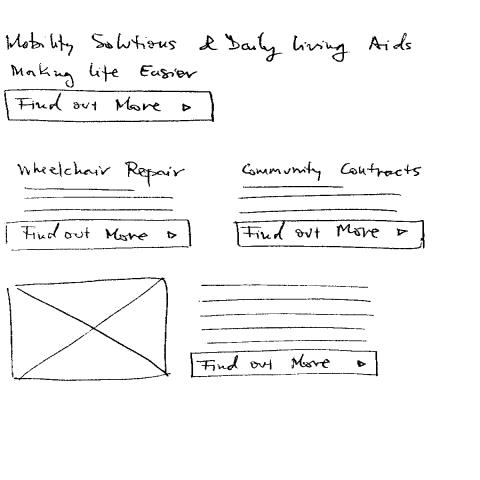 Mobility Solutions & Daily Living Aids
Making Life Easier
Find out More ▷
Wheelchair Repair
Find out More ▷
Community Contracts
Find out More ▷
Find out More ▷